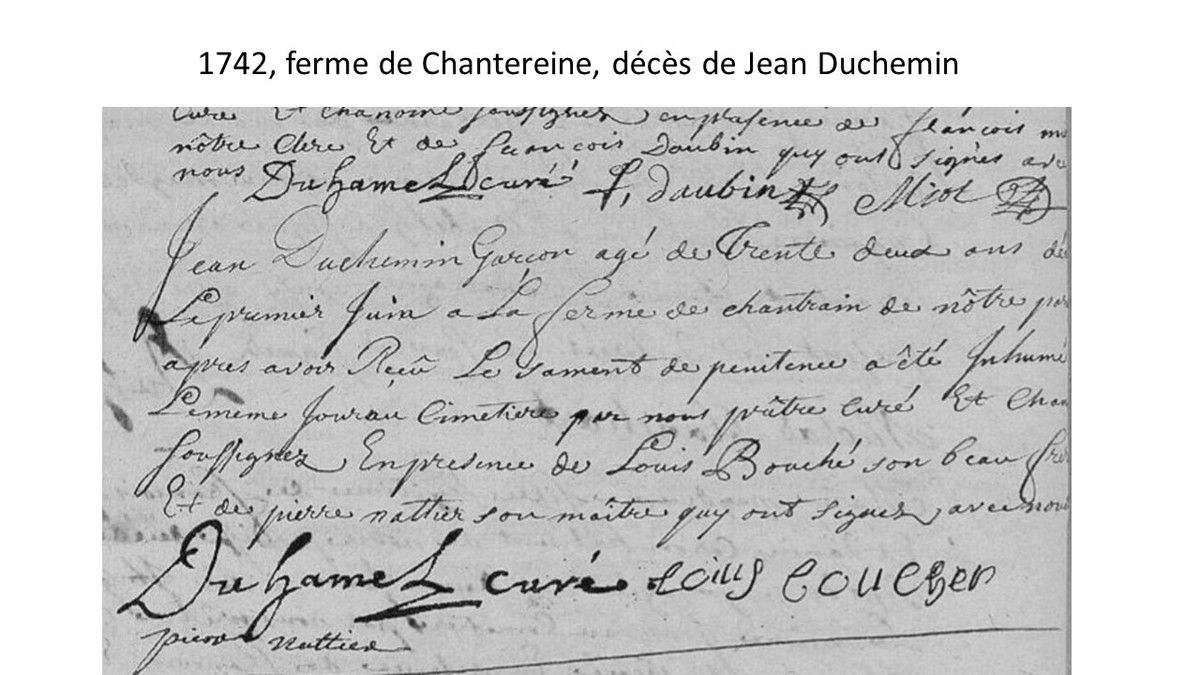 1742, ferme de Chantereine, décès de Jean Duchemin
Curé Et chanoine soussignez en presence de françois
nôtre Clerc Et de francois Daubin quy ont signés avec
nous Duhamel curé f, daubin Miot
Jean Duchemin Garçon agé de Trente deux ans
Le premier Juin a La ferme de chantrain de nôtre
apres avoir Reçû Le sament de penitence a êté Inhumé
Le meme Jour au Cimetiere par nous prâtre Curé Et Chan
soussignez En presence de Louis Bouché son beau frer
Et de pierre nattier son maître quy ont signez avec nous
Duhamel curé Louis
pierre nattier